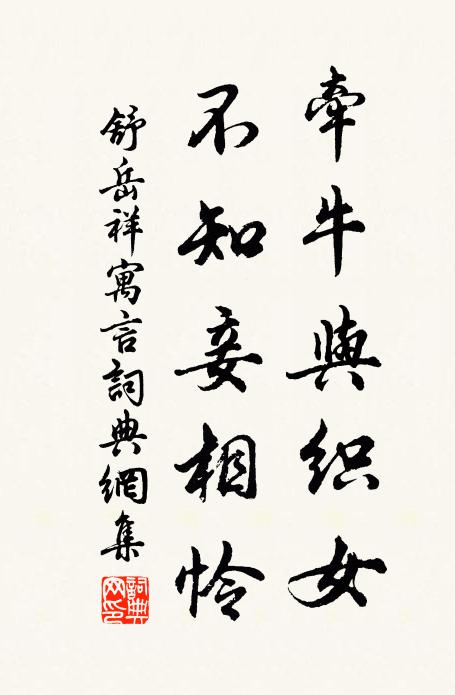 牽牛與织女
不知妾相怜
舒岳祥寓言詞典網集
詞典網印